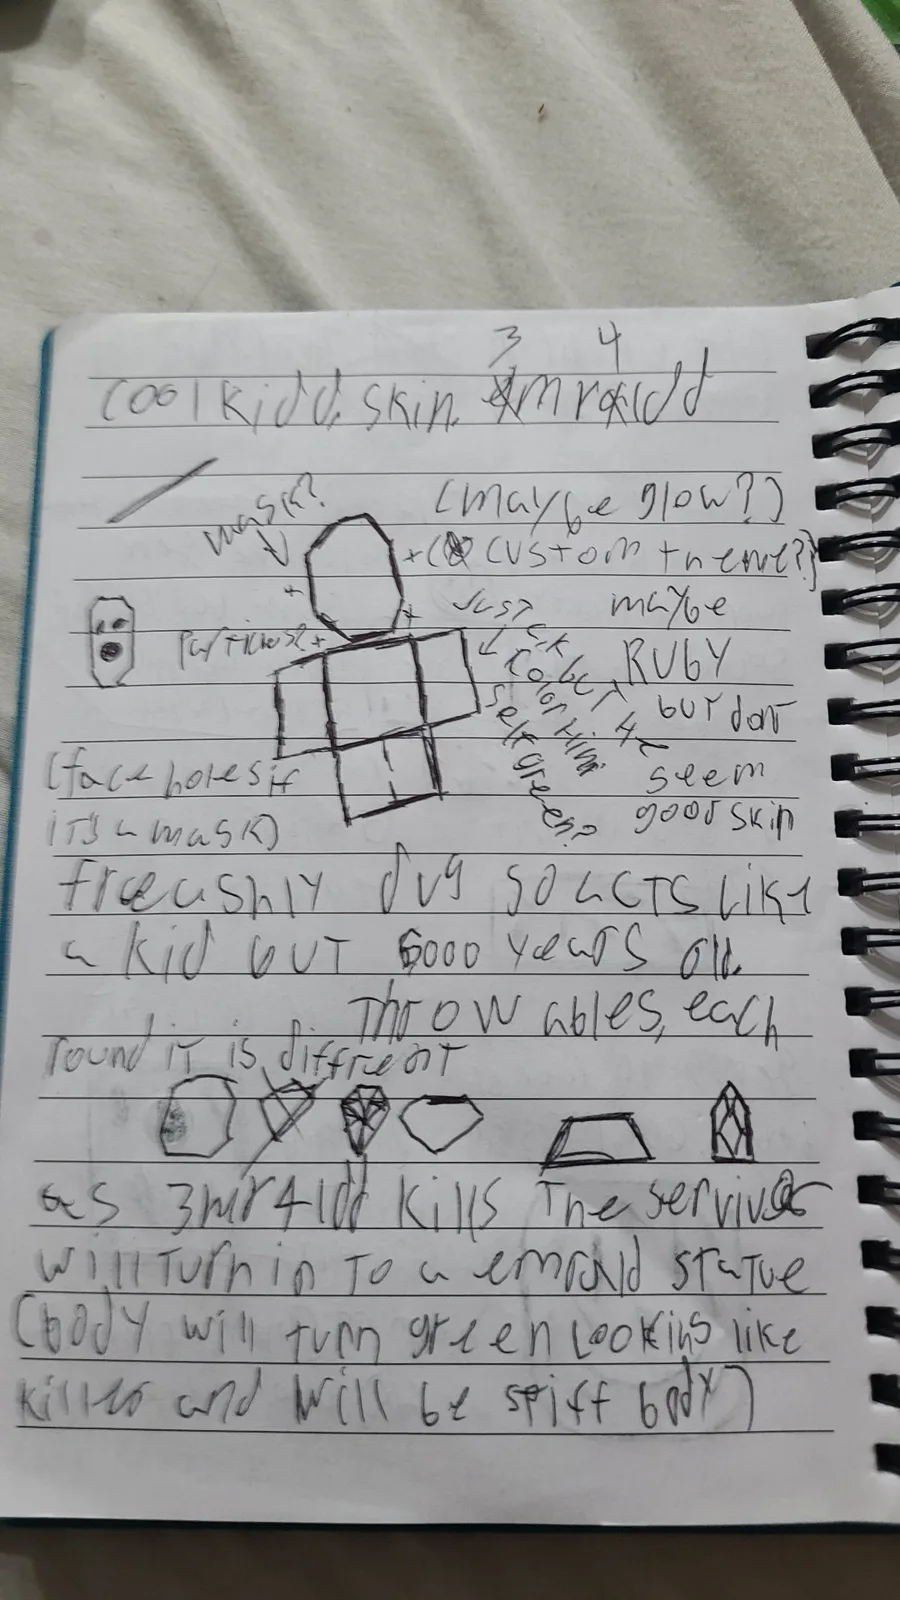 3 4
coolkidd skin 3mr4ldd
mask?
(maybe glow?)
(custom theme?)
maybe
RUBY
but dont
seem
good skin
Particles?
Just
color him
self green?
(face holes if
it's a mask)
freeushly dug so acts like
a kid but 6000 years old.
Throw ables, each
round it is diffrent
as 3mr4ldd kills the servivor
will turn in to a emrald statue
(body will turn green looking like
killer and will be stiff body)